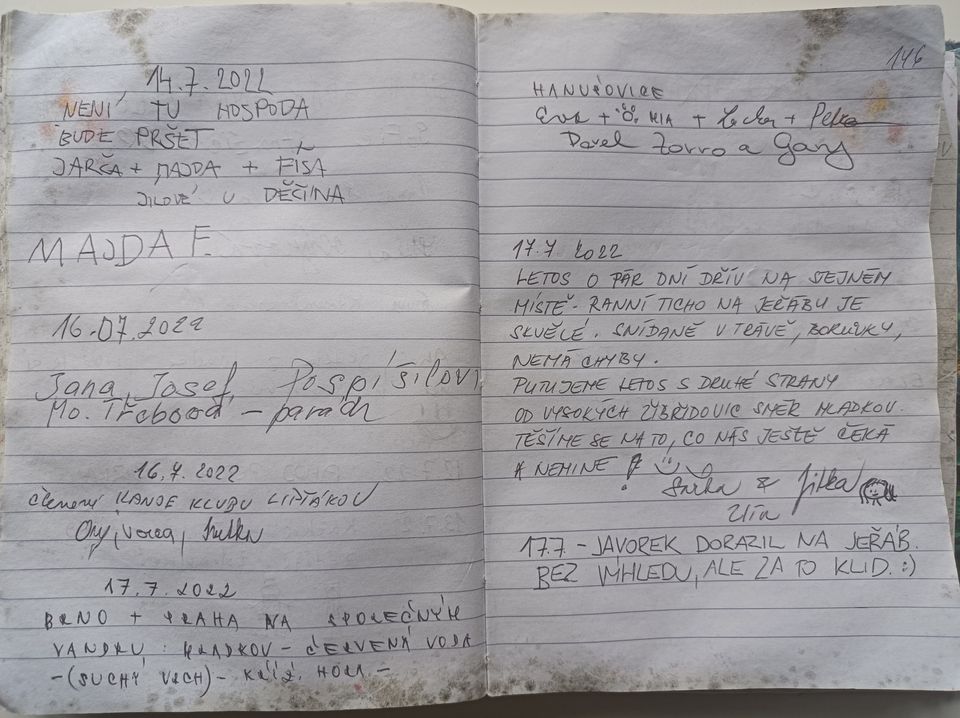 14.7.2022
NENÍ TU HOSPODA
BUDE PRŠET
JARČA + MAJDA + FÍŠA
JILOVÉ U DĚČÍNA
MAJDA F.
16.07.2022
Jana, Josef, Pospíšilovi
Mo. Třebová - paráda
16.7.2022
členové KANOE KLUBU
17.7.2022
BRNO + PRAHA NA SPOLEČNÝM
VANDRU: MLADKOV - ČERVENÁ VODA
-(SUCHÝ VRCH)- KŘÍŽ. HORA -
146
HANUŠOVICE
Eva + MIA + + Petra
Pavel Zorro a Gany
17.7 2022
LETOS O PÁR DNÍ DŘÍV NA STEJNÉM
MÍSTĚ. RANNÍ TICHO NA JEŘÁBU JE
SKVĚLÉ. SNÍDANĚ V TRÁVĚ, BORŮVKY,
NEMÁ CHYBY.
PUTUJEME LETOS S DRUHÉ STRANY
OD VYSOKÝCH ŽIBŘIDOVIC SMĚR MLADKOV.
TĚŠÍME SE NA TO, CO NÁS JEŠTĚ ČEKÁ
A NEMINE!
& Jitka
Zlín
17.7 - JAVOREK DORAZIL NA JEŘÁB.
BEZ VÝHLEDU, ALE ZA TO KLID. :)